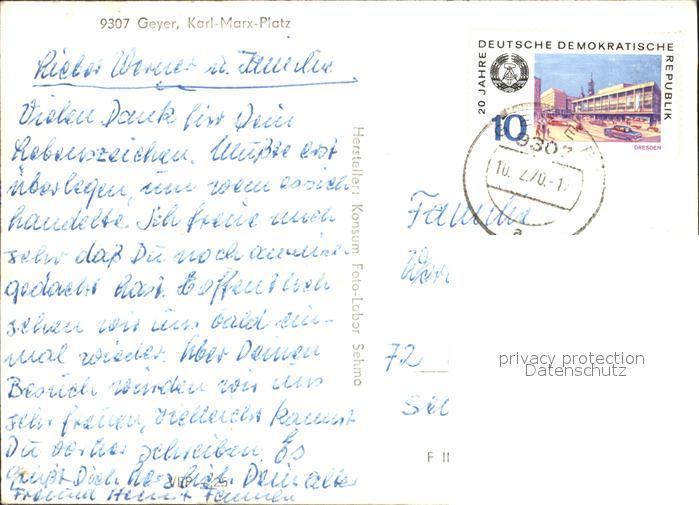 9307 Geyer, Karl-Marx-Platz
Lieber Werner u. Familie
Vielen Dank für Dein
Lebenszeichen. Mußte erst
überlegen, um wem es sich
handelte. Ich freue mich
sehr daß Du noch an mich
gedacht hast. Hoffentlich
sehen wir uns bald ein-
mal wieder. Über Deinen
Besuch würden wir uns
sehr freuen, vielleicht kannst
Du vorher schreiben. Es
grüßt Dich herzlich Dein alter
Freund Horst
Hersteller: Konsum Foto-Labor Sehma
20 JAHRE DEUTSCHE DEMOKRATISCHE REPUBLIK
10
DRESDEN
9307
10.2.70.-1
a
Familie
72
privacy protection
Datenschutz